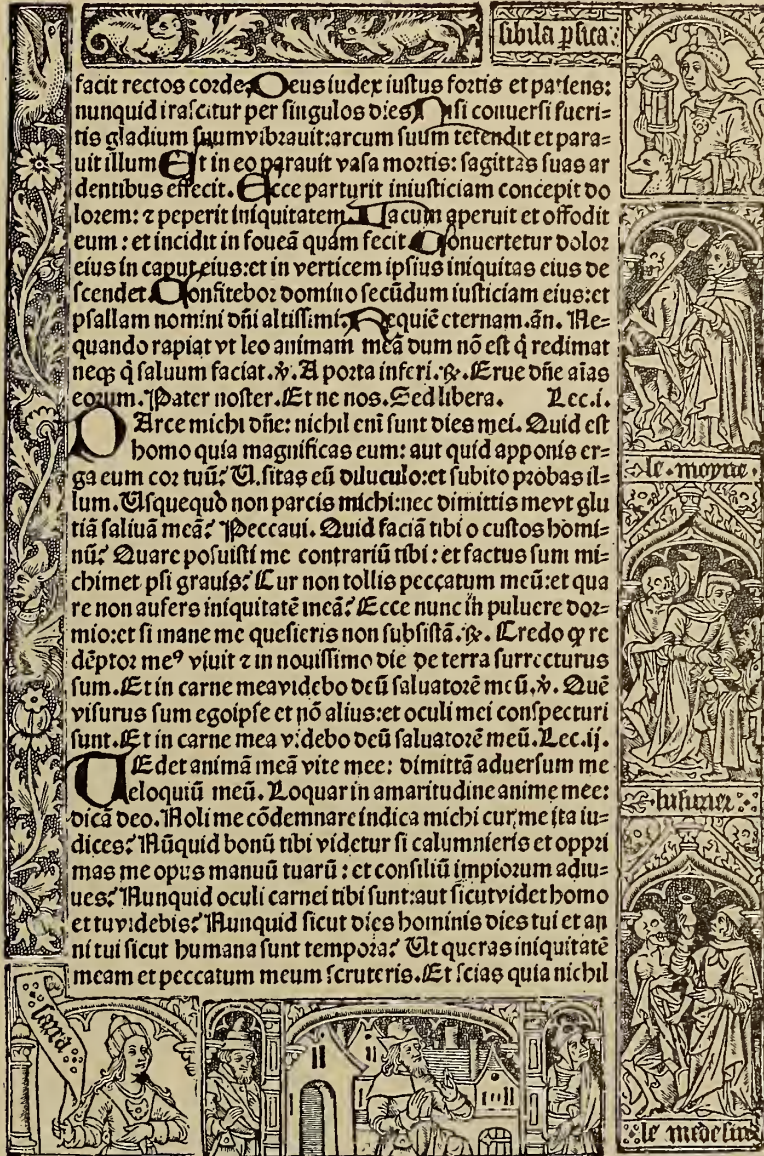 sibila psica
facit rectos corde. Deus iudex iustus fortis et patiens:
nunquid irascitur per singulos dies Nisi conuersi fueri-
tis gladium suum vibrauit: arcum suum tetendit et para-
uit illum Et in eo parauit vasa mortis: sagittas suas ar
dentibus effecit. Ecce parturit iniusticiam concepit do
lorem: ⁊ peperit iniquitatem. Lacum aperuit et effodit
eum: et incidit in foueã quam fecit Conuertetur dolor
eius in caput eius: et in verticem ipsius iniquitas eius de
scendet. Confitebor domino secũdum iusticiam eius: et
psallam nomini dñi altissimi. Requiẽ eternam. añ. Ne-
quando rapiat vt leo animam meã dum nõ est q̃ redimat
neqꝫ q̃ saluum faciat. ℣. A porta inferi. ℟. Erue dñe aĩas
eorum. Pater noster. Et ne nos. Sed libera. Lec. i.
PArce michi dñe: nichil enĩ sunt dies mei. Quid est
homo quia magnificas eum: aut quid apponis er-
ga eum cor tuũ? Uisitas eũ diluculo: et subito probas il-
lum. Usquequo non parcis michi: nec dimittis me vt glu
tiã saliuã meã? Peccaui. Quid faciã tibi o custos homi-
nũ? Quare posuisti me contrariũ tibi: et factus sum mi-
chimet psi grauis? Cur non tollis peccatum meũ: et qua
re non aufers iniquitatẽ meã? Ecce nunc in puluere dor-
mio: et si mane me quesieris non subsistã. ℟. Credo ꝙ re
dẽptor meꝰ viuit ⁊ in nouissimo die de terra surrecturus
sum. Et in carne mea videbo deũ saluatorẽ meũ. ℣. Quẽ
visurus sum ego ipse et nõ alius: et oculi mei conspecturi
sunt. Et in carne mea videbo deũ saluatorẽ meũ. Lec. ij.
TEdet animã meã vite mee: dimittã aduersum me
eloquiũ meũ. Loquar in amaritudine anime mee:
dicã deo. Noli me cõdemnare indica michi cur me ita iu-
dices? Nũquid bonũ tibi videtur si calumnieris et oppri
mas me opus manuũ tuarũ: et consiliũ impiorum adiu-
ues? Nunquid oculi carnei tibi sunt: aut sicut videt homo
et tu videbis? Nunquid sicut dies hominis dies tui et an
ni tui sicut humana sunt tempora? Ut queras iniquitatẽ
meam et peccatum meum scruteris. Et scias quia nichil
le moyne
lusurier
le medesin